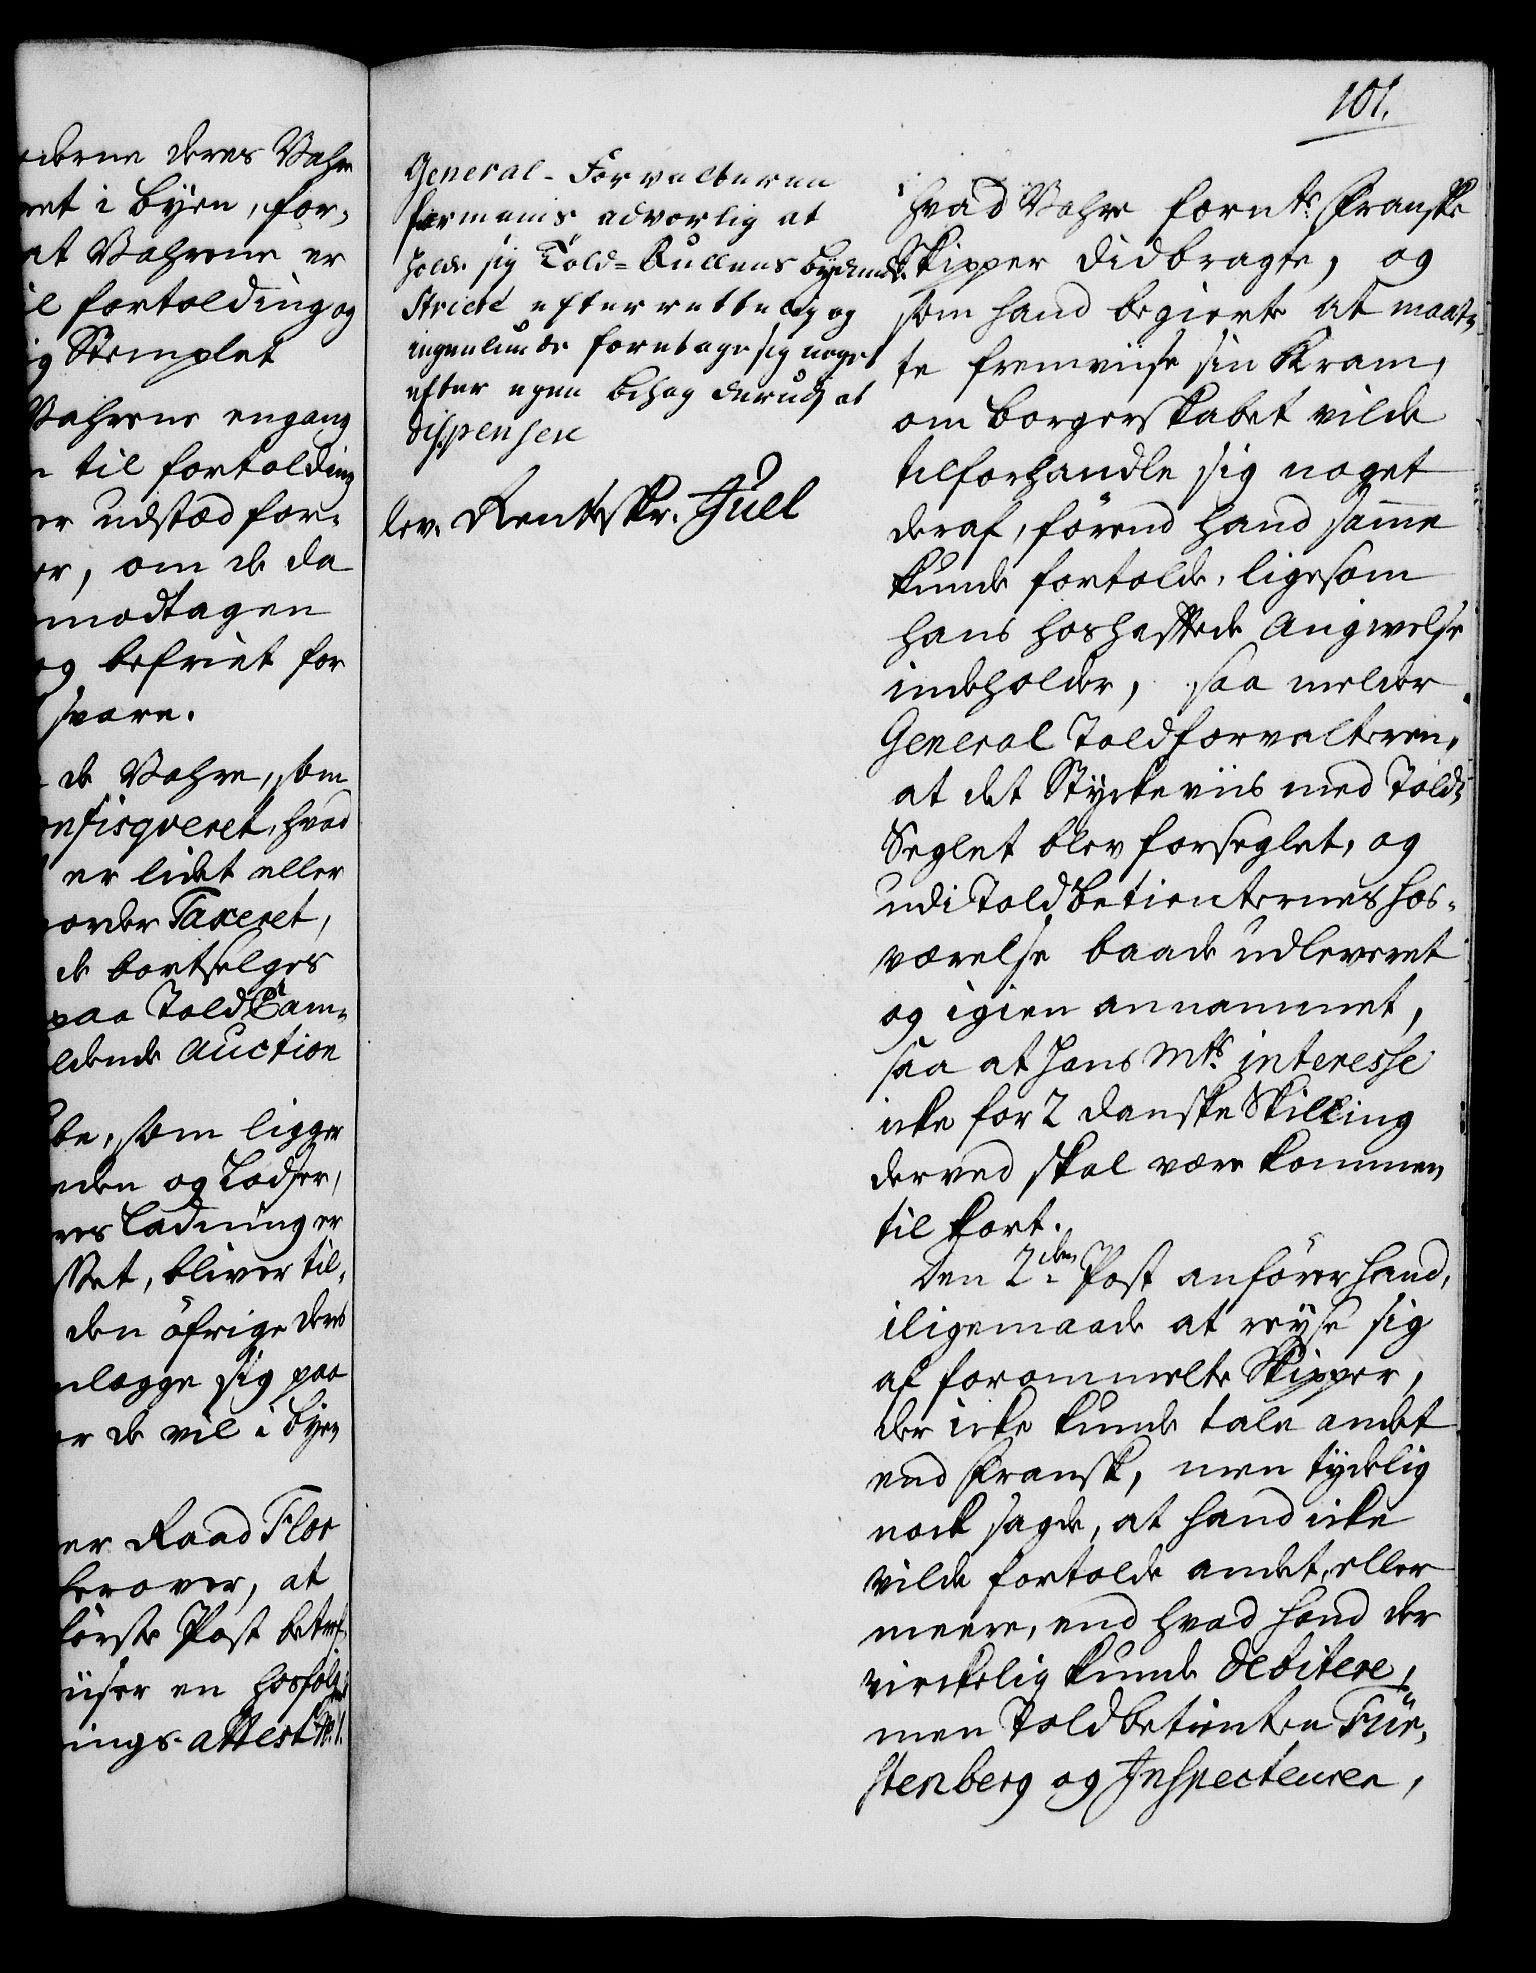 101.
oderne deres Vahre
ret i Byen, for-
at Vahrene er
il fortolding og
ig Stemplet
Vahrene engang
n til fortolding
er udstæd for-
er, om de da
modtagen
og befriet for
svare.
de Vahre, som
onfisqveret, hvad
er lidet eller
order Taxeret,
de bortselges
paa ToldCam-
ldende Auction
be, som ligger
eden og Losser,
res Ladning er
sset, bliver til-
den öfrige deres
nlægge sig paa
er de vil i Byen
er Raad Flor
herover, at
förste Post betref-
iiser en hosfölgende
ings attest No. 1.
General-Forvalteren
formanis advorlig at
holde sig Told-Rullens bydende
Stricte efterrettelig og
ingenlunde foretage sig noget
efter egen behag derudj at
dispensere
lev. Rentskr. Juel
hvad Vahre fornte Franske
Skipper didbragte, og
som hand begierte at maat-
te fremviise sin Kram,
om Borgerskabet vilde
tilforhandle sig noget
deraf, förend hand samme
kunde fortolde, ligesom
hans hoshæftede Angivelse
indeholder, saa melder
General Toldforvalteren,
at det Stÿckeviis med Told-
Seglet blev forseglet, og
udi Toldbetienternes hos-
værelse baade udleveret
og igien annammet,
saa at Hans Mts. interesse
icke for 2 danske Skilling
derved skal være kommen
til kort.
Den 2den Post anförer hand,
iligemaade at reÿse sig
af forommelte Skipper,
der icke kunde tale andet
end Fransk, men tÿdelig
nock sagde, at hand icke
vilde fortolde andet, eller
meere, end hvad hand der
virckelig kunde debitere,
men Toldbetienten Für-
stenberg og Inspecteuren,